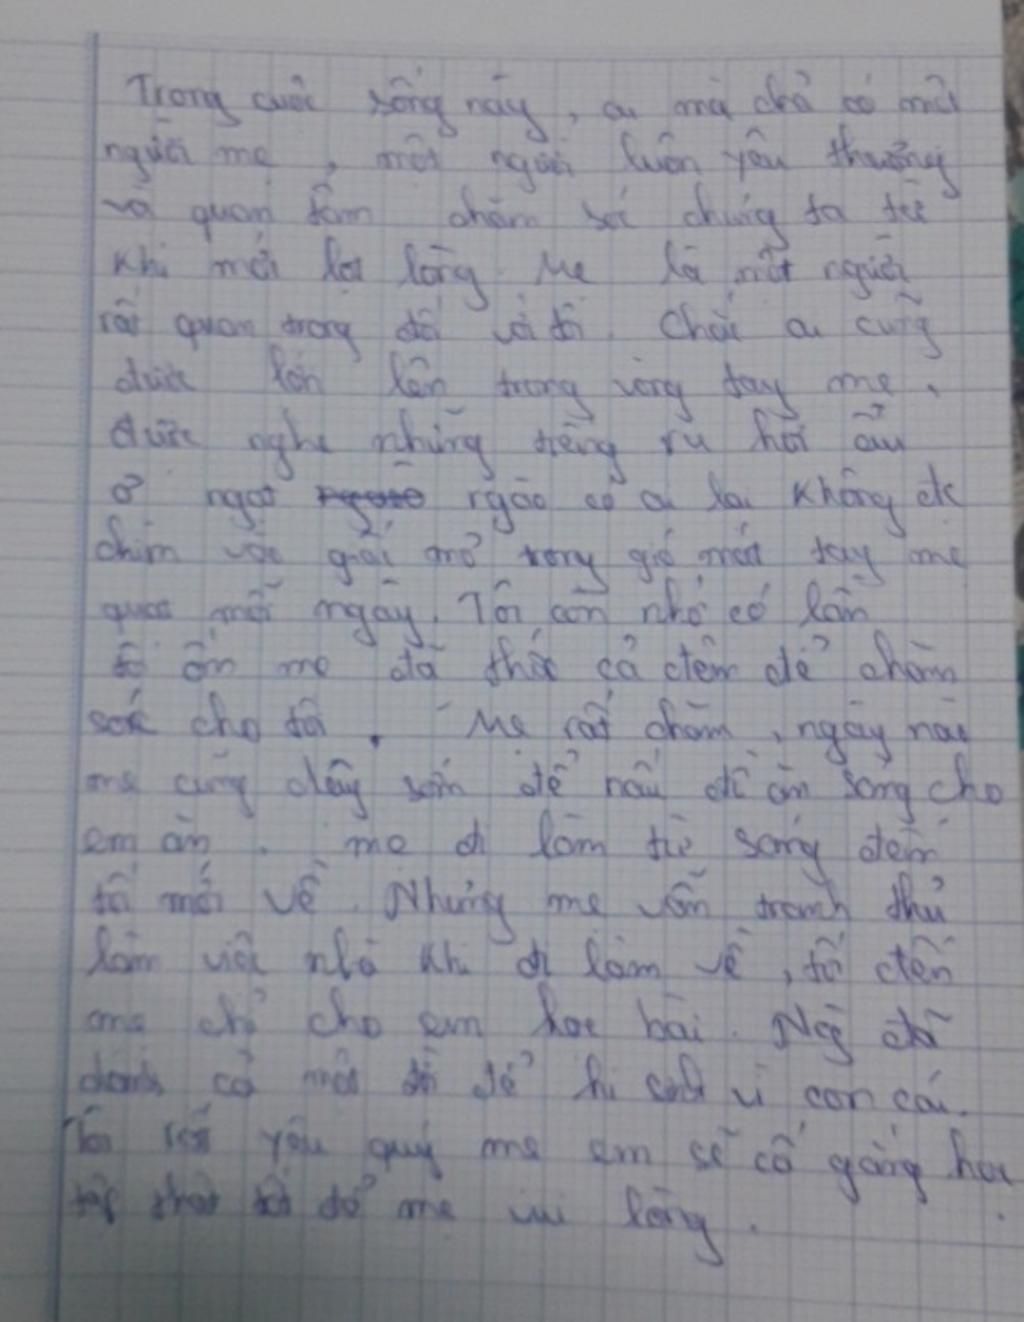 Trong cuộc sống này, ai mà chả có một
người mẹ, một người luôn yêu thương
và quan tâm chăm sóc chúng ta từ
khi mới lọt lòng. Mẹ là một người
rất quan trọng đối với tôi. Chắc ai cũng
được lớn lên trong vòng tay mẹ,
được nghe những tiếng ru hời ầu
ơ ngọt ngào có ai lại không đc
chìm vào giấc mơ trong gió mát tay mẹ
quạt mỗi ngày. Tôi còn nhỏ có lần
ốm mẹ đã thức cả đêm để chăm
sóc cho tôi. Mẹ rất chăm, ngày nào
mẹ cũng dậy sớm để nấu đồ ăn sáng cho
em ăn. mẹ đi làm từ sáng đến
tối mới về. Nhưng mẹ vẫn tranh thủ
làm việc nhà khi đi làm về, tối đến
mẹ chỉ cho em học bài.
dành cả một đời để hi sinh vì con cái.
Tôi rất yêu quý mẹ em sẽ cố gắng học
tập thật tốt để mẹ vui lòng.